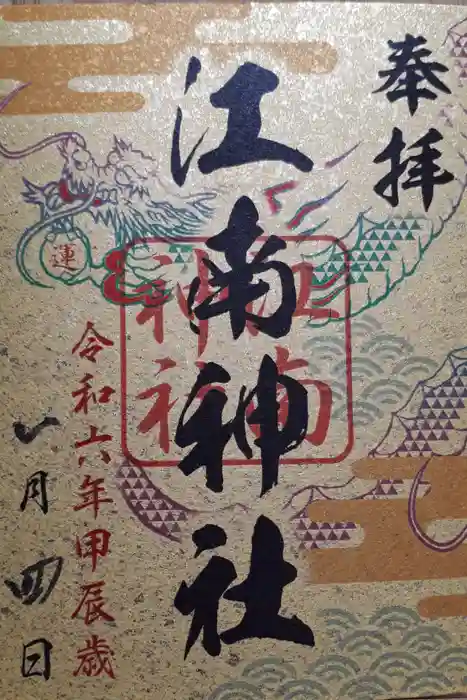 奉拝
江南神社
江南神社
令和六年甲辰歳
一月四日
運